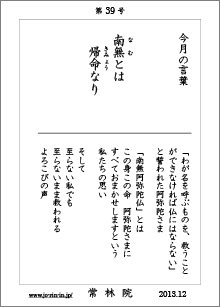 第39号
今月の言葉
南無とは
なむ
帰命なり
きみょう
「わが名を呼ぶものを、救うこと
ができなければ仏にはならない」
と誓われた阿弥陀さま
「南無阿弥陀仏」とは
この身この命 阿弥陀さまに
すべておまかせしますという
私たちの思い
そして
至らない私でも
至らないまま救われる
よろこびの声
www.jorin-in.jp/
常林院
2013.12